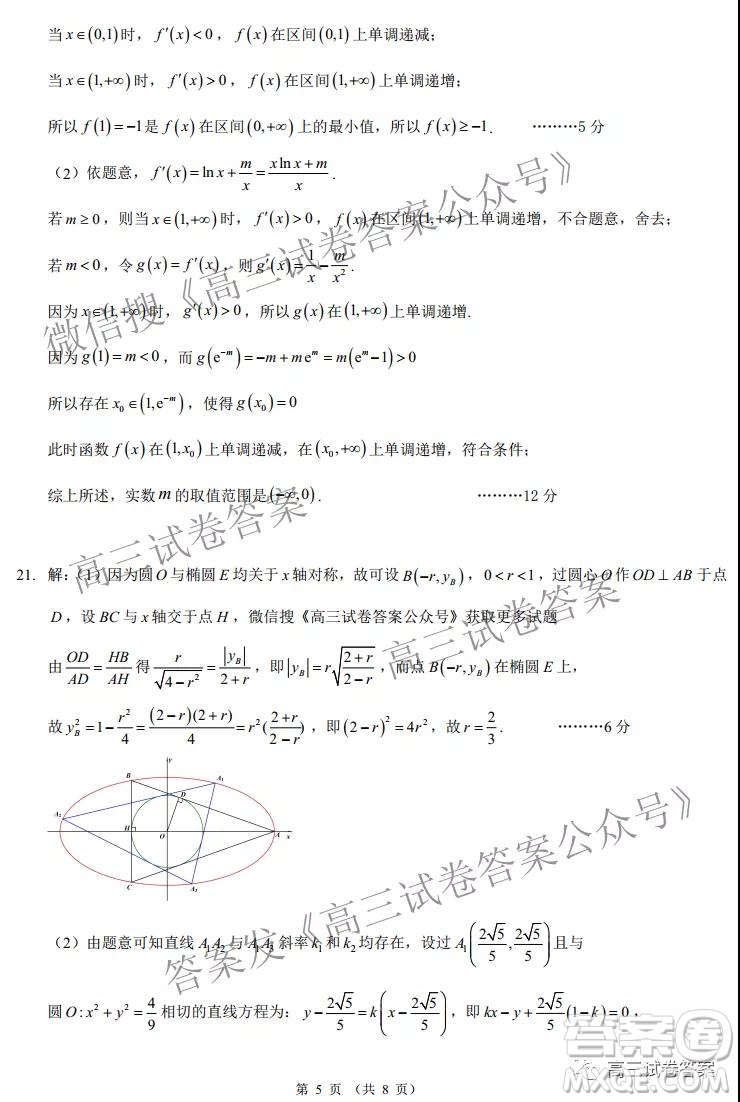 当 x∈(0,1)时， f′(x)<0 ， f(x)在区间(0,1)上单调递减；
当 x∈(1,+∞)时， f′(x)>0 ， f(x)在区间(1,+∞)上单调递增；
所以 f(1)=-1是 f(x)在区间(0,+∞)上的最小值，所以 f(x)≥-1． ………5 分
（2）依题意， f′(x)=ln x+m/x=(x ln x+m)/x．
若 m≥0，则当 x∈(1,+∞)时， f′(x)>0， f(x)在区间(1,+∞)上单调递增，不合题意，舍去；
若 m<0，令 g(x)=f′(x)，则 g′(x)=1/x-m/x²．
因为 x∈(1,+∞)时， g′(x)>0，所以 g(x)在(1,+∞)上单调递增．
因为 g(1)=m<0，而 g(e⁻ᵐ)=-m+meᵐ=m(eᵐ-1)>0
所以存在 x₀∈(1,e⁻ᵐ)，使得 g(x₀)=0
此时函数 f(x)在(1,x₀)上单调递减，在(x₀,+∞)上单调递增，符合条件；
综上所述，实数 m 的取值范围是(-∞,0)． ………12 分
微信搜《高三试卷答案公众号》
21．解：（1）因为圆 O 与椭圆 E 均关于 x 轴对称，故可设 B(-r,y_B)，0<r<1，过圆心 O 作 OD⊥AB 于点
D，设 BC 与 x 轴交于点 H，微信搜《高三试卷答案公众号》获取更多试题
由 OD/AD=HB/AH 得 r/√(4-r²)=|y_B|/(2+r)，即|y_B|=r√((2+r)/(2-r))，而点 B(-r,y_B)在椭圆 E 上，
故 y_B²=1-r²/4=(2-r)(2+r)/4=r²((2+r)/(2-r))，即(2-r)²=4r²，故 r=2/3． ………6 分
高三试卷答案
高三试卷答案
y
B
A₁
D
A₂
H
O
A
x
C
A₃
答案发《高三试卷答案公众号》
（2）由题意可知直线 A₁A₂ 与 A₁A₃ 斜率 k₁ 和 k₂ 均存在，设过 A₁(2√5/5,2√5/5)且与
圆 O:x²+y²=4/9 相切的直线方程为： y-2√5/5=k(x-2√5/5)，即 kx-y+2√5/5(1-k)=0，
第 5 页 （共 8 页）
高三试卷答案
答案圈
MXQE.COM